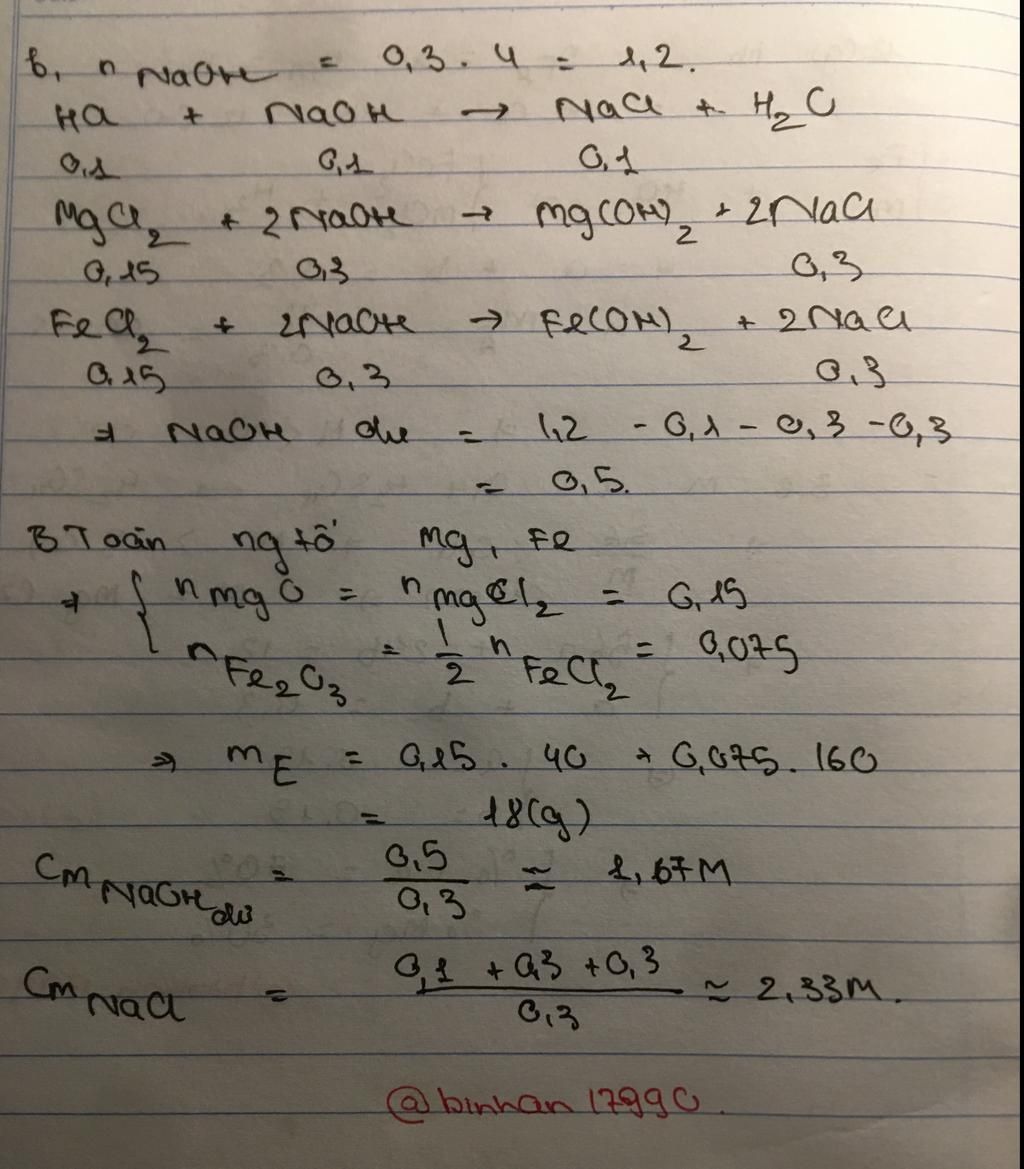 b, n NaOH = 0,3 . 4 = 1,2.
HCl + NaOH → NaCl + H₂O
0,1 0,1 0,1
MgCl₂ + 2NaOH → Mg(OH)₂ + 2NaCl
0,15 0,3 0,3
FeCl₂ + 2NaOH → Fe(OH)₂ + 2NaCl
0,15 0,3 0,3
⇒ NaOH dư = 1,2 - 0,1 - 0,3 - 0,3
= 0,5.
BToàn ng tố Mg, Fe
⇒ { n MgO = n MgCl₂ = 0,15
n Fe₂O₃ = 1/2 n FeCl₂ = 0,075
⇒ m E = 0,15 . 40 + 0,075 . 160
= 18(g)
CM NaOH dư = 0,5/0,3 ≈ 1,67M
CM NaCl = (0,1 + 0,3 + 0,3)/0,3 ≈ 2,33M.
@binhan17990.